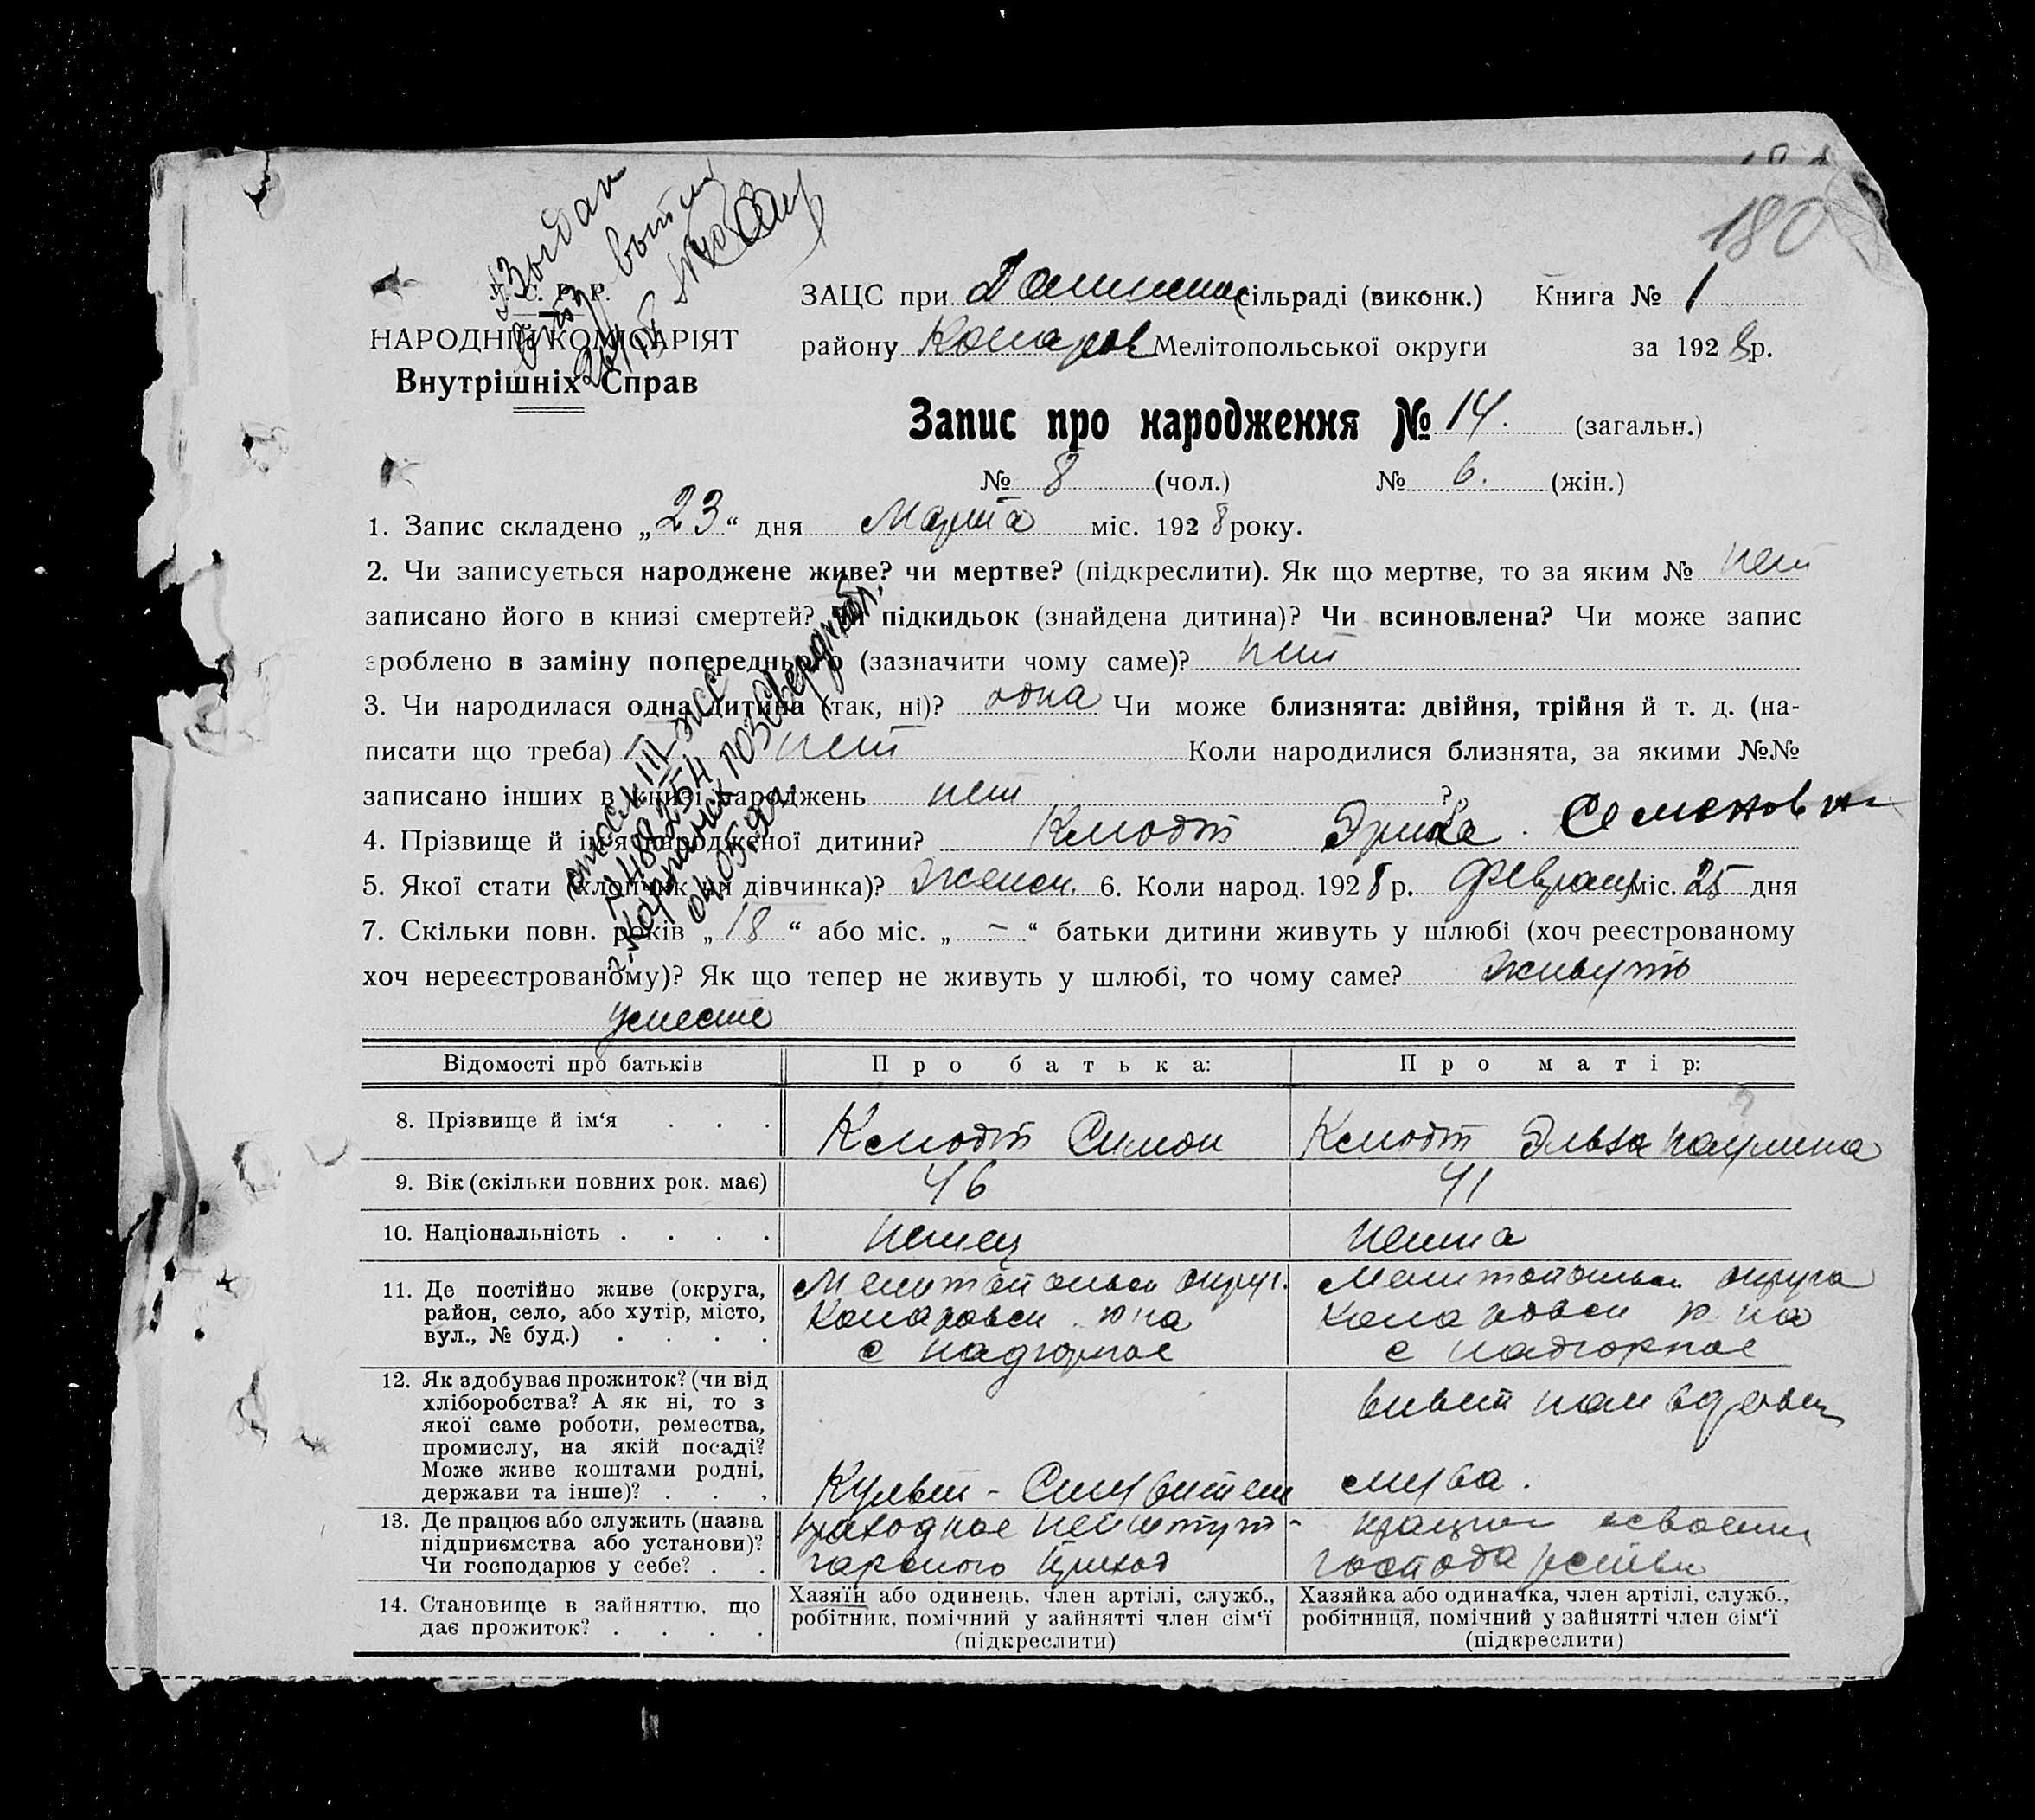 180
У. С. Р. Р.
НАРОДНІЙ КОМІСАРІЯТ
Внутрішніх Справ
ЗАЦС при сільраді (виконк.) Книга № 1
району Комаров Мелітопольської округи за 1928 р.
Запис про народження № 14. (загальн.)
№ 8 (чол.) № 6. (жін.)
1. Запис складено „23“ дня Марта міс. 1928 року.
2. Чи записується народжене живе? чи мертве? (підкреслити). Як що мертве, то за яким № нет
записано його в книзі смертей? Чи підкидьок (знайдена дитина)? Чи всиновлена? Чи може запис
зроблено в заміну попереднього (зазначити чому саме)? нет
3. Чи народилася одна дитина (так, ні)? одна Чи може близнята: двійня, трійня й т. д. (на-
писати що треба) нет Коли народилися близнята, за якими №№
записано інших в книзі народжень нет ?
4. Прізвище й ім'я народженої дитини? Кмодт Эрика. Семеновна
5. Якої стати (хлопчик чи дівчинка)? Женск. 6. Коли народ. 1928 р. Февраля міс. 25 дня
7. Скільки повн. років „18“ або міс. „–“ батьки дитини живуть у шлюбі (хоч реєстрованому
хоч нереєстрованому)? Як що тепер не живуть у шлюбі, то чому саме? живуть
уместе
Відомості про батьків Про батька: Про матір:
8. Прізвище й ім‘я . . . Кмодт Симон Кмодт Эльза Паулина
9. Вік (скільки повних рок. має) 46 41
10. Національність . . . . Немец Немка
11. Де постійно живе (округа, район, село, або хутір, місто, вул., № буд.) . . . .
Мелитопольск округ.
р-на
с Надгорное
округа
р-на
с Надгорное
12. Як здобуває прожиток? (чи від хліборобства? А як ні, то з якої саме роботи, ремества, промислу, на якій посаді? Може живе коштами родні, держави та інше)? . . .
Культ-Служитель
13. Де працює або служить (назва підприємства або установи)? Чи господарює у себе? . .
приход
14. Становище в зайняттю, що дає прожиток? . . . .
Хазяїн або одинець, член артілі, служб., робітник, помічний у зайнятті член сім‘ї (підкреслити)
Хазяйка або одиначка, член артілі, служб., робітниця, помічний у зайнятті член сім‘ї (підкреслити)